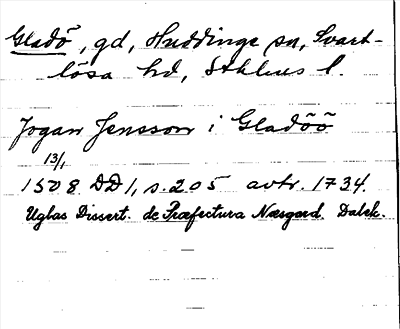 Gladö, gd, Huddinge sn, Svart-
lösa hd, Sthlms l.
Jogan Jensson i Gladöö
13/1
1508 DD1, s. 205 avtr. 1734.
Uglas Dissert. de Præfectura Næsgard. Dalek.